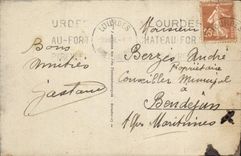 LOURDES
AU-FORT
LOURDES
CHATEAU-FORT
Bons
amitiés
Monsieur
Berges André
propriétaire
Conseiller Municipal
à
Bendejun
Alpes Maritimes